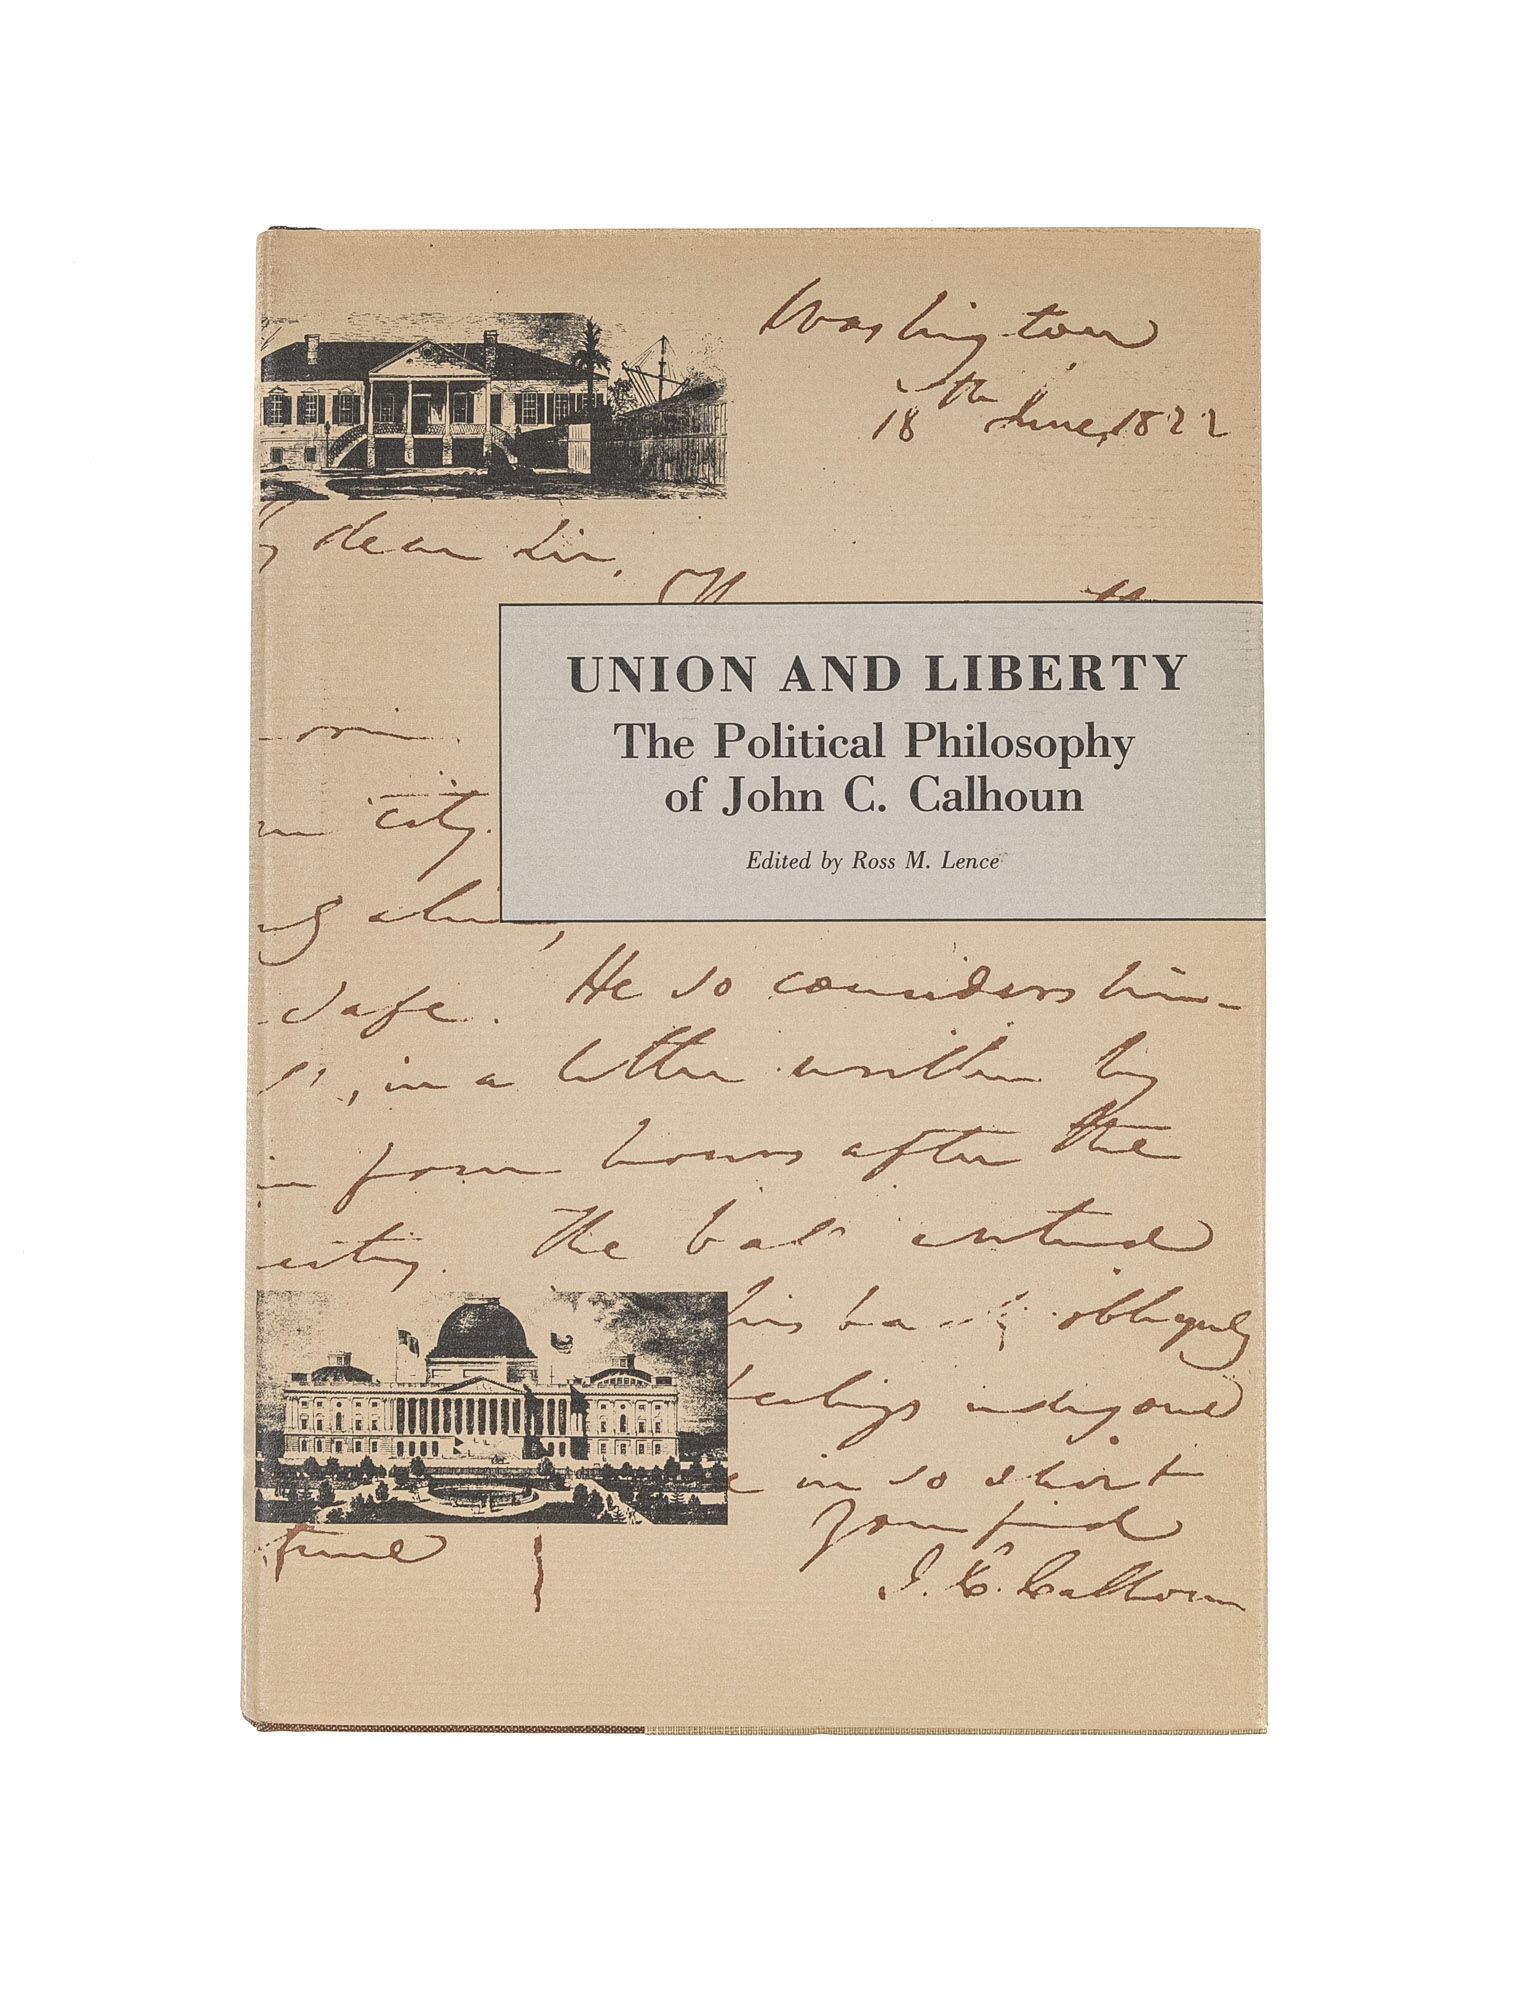 Washington
18th June, 1822
dear Sir,
UNION AND LIBERTY
The Political Philosophy
of John C. Calhoun
Edited by Ross M. Lence
city.
safe. He so considers him-
, in a letter written by
four hours after the
The ball entered
his back obliquely
in so short
time
Your friend
J. C. Calhoun